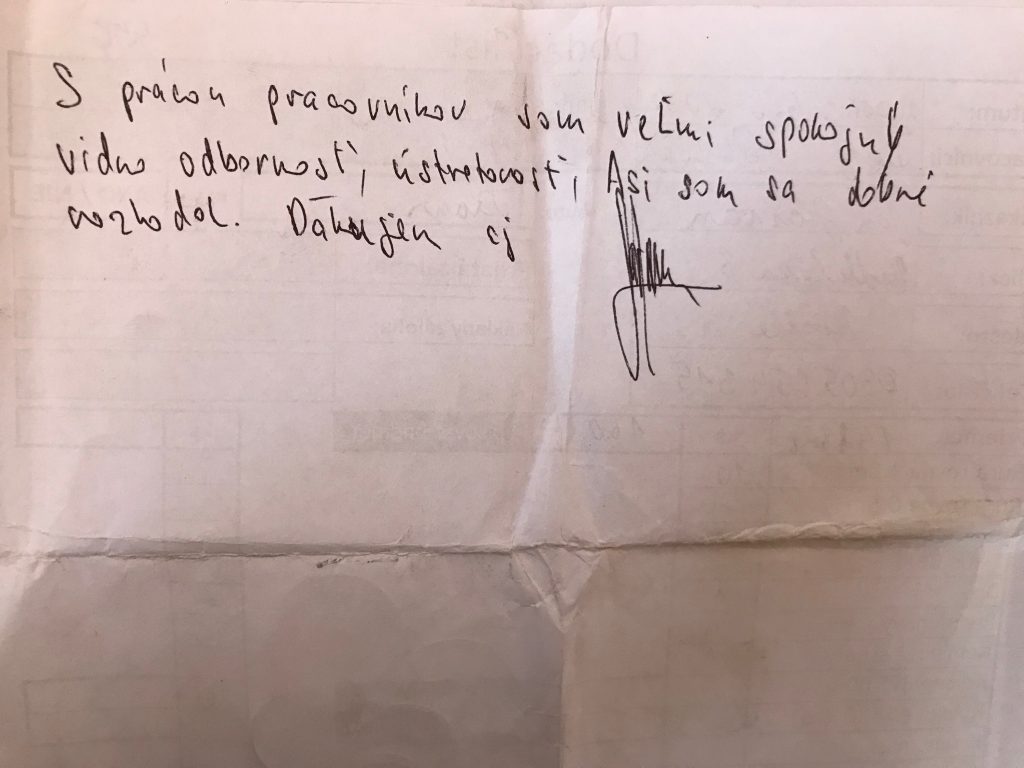 S prácou pracovníkov som veľmi spokojný
vidno odbornosť, ústretovosť, Asi som sa dobre
rozhodol. Ďakujem aj